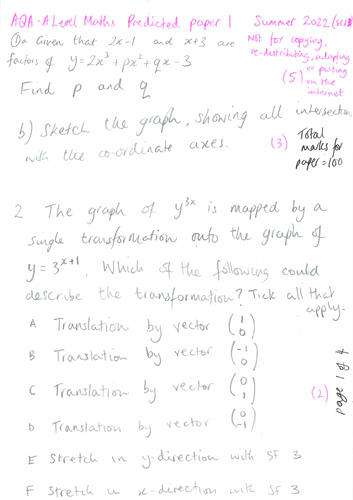 AQA - A Level Maths Predicted paper 1 Summer 2022
1)a Given that 2x-1 and x+3 are
factors of y = 2x³ + px² + qx - 3
Find p and q
(5)
Not for copying,
re-distributing, adapting
or posting
on the
internet
b) Sketch the graph, showing all intersection
with the co-ordinate axes.
(3)
Total
marks for
paper = 100
2 The graph of y³ˣ is mapped by a
single transformation onto the graph of
y = 3ˣ⁺¹. Which of the following could
describe the transformation? Tick all that
apply.
A Translation by vector (1 0)
B Translation by vector (-1 0)
C Translation by vector (0 1)
D Translation by vector (0 -1)
(2)
page 1 of 4
E Stretch in y-direction with SF 3
F Stretch in x-direction with SF 3